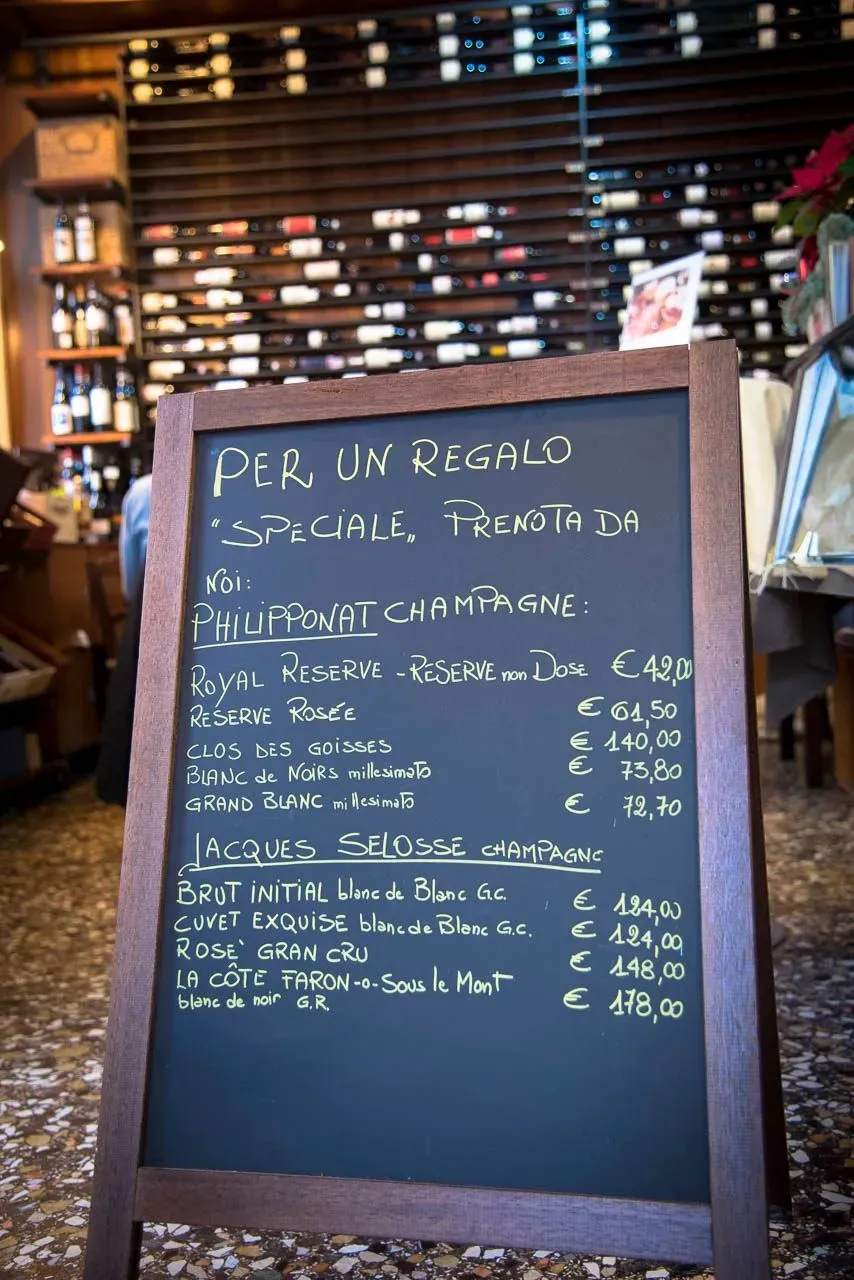 PER UN REGALO
"SPECIALE„ PRENOTA DA
NOI:
PHILIPPONAT CHAMPAGNE:
ROYAL RESERVE - RESERVE non DOSE € 42,00
RESERVE ROSÉE € 61,50
CLOS DES GOISSES € 140,00
BLANC de NOIRS millesimato € 73,80
GRAND BLANC millesimato € 72,70
JACQUES SELOSSE CHAMPAGNE
BRUT INITIAL blanc de Blanc G.C. € 124,00
CUVET EXQUISE blanc de Blanc G.C. € 124,00
ROSE' GRAN CRU € 148,00
LA CÔTE FARON -o- Sous le Mont
blanc de noir G.R. € 178,00